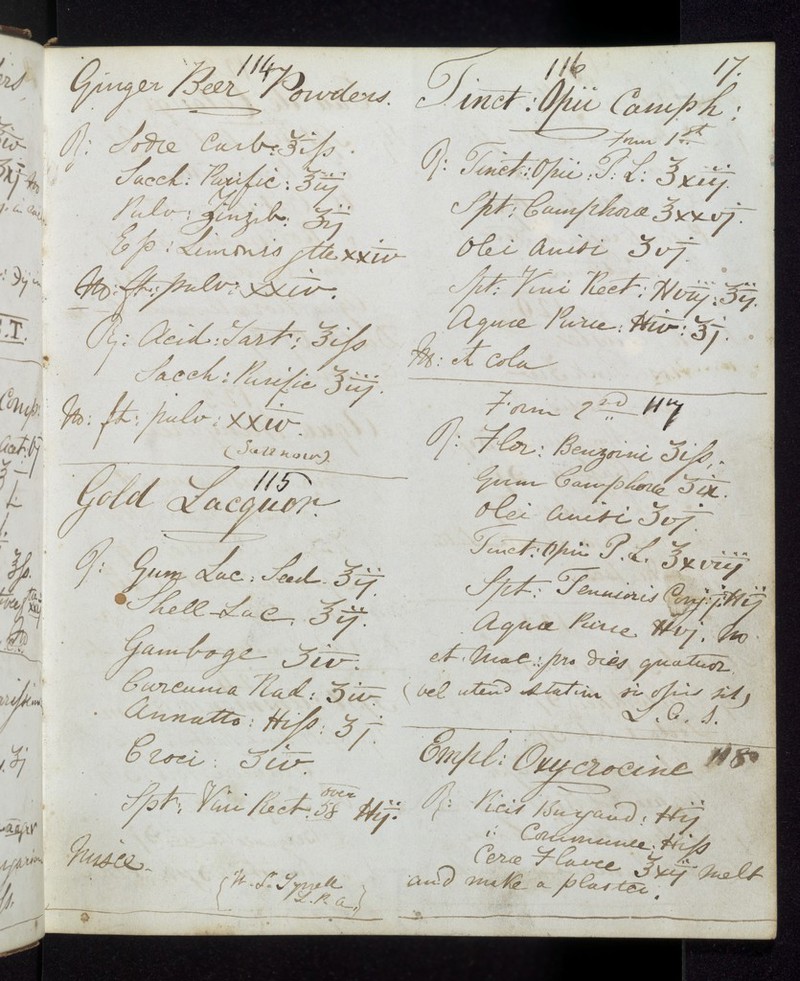 114
Ginger Beer Powders.
℞: Sodæ Carb: ʒiſs.
Sacch: Purific: ʒiij
Pulv: Zinzib. ʒij
Eſs: Limonis gtte xxiv
M: ft: pulv: xxiv.
℞: Acid: Tart: ʒiſs
Sacch: Purific ʒiij.
M: ft: pulv: xxiv.
115
Gold Lacquor.
℞: Gum Lac: Seed. ʒij.
Shell-Lac ʒij.
Gamboge ʒiv.
Curcuma Rad: ʒiv.
Annatto: ℔iſs: ʒj.
Croci: ʒiv.
over
Spt: Vini Rect. 58 ℔ij.
Misce.
116
17.
Tinct: Opii Camph:
Form 1st
℞: Tinct: Opii: P: L: ℥xiij.
Spt: Camphoræ ℥xxvj.
Olei Anisi ʒvj.
Spt: Vini Rect: ℔viij: ℥ij.
Aquæ Puræ: ℔iv: ℥j.
M: et cola
Form 2nd 117
℞: Flor: Benzoini ʒiſs.
Gum Camphoræ ʒix.
Olei Anisi ʒvj.
Tinct: Opii P. L. ℥xviij
Spt: Tennioris Conj: j. ℔ij
Aquæ Puræ ℔vj. M
et Mac: pro dies quatuor
(vel utend statim si opis sit)
L. A. S.
Empl: Oxycrocine 118
℞: Picis Burgund: ℔ij
" Communee: ℔iſs
Ceræ Flavæ ℥xij melt
and make a plaster.